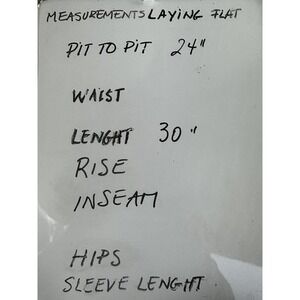 MEASUREMENTS LAYING FLAT
PIT TO PIT 24"
WAIST
LENGHT 30"
RISE
INSEAM
HIPS
SLEEVE LENGHT